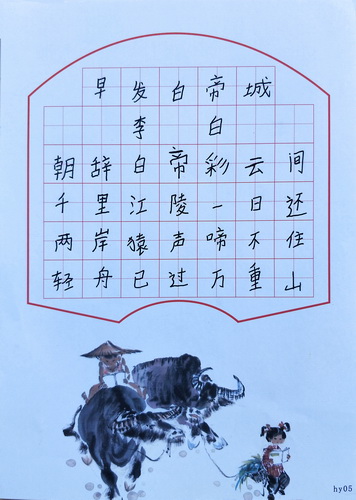 早发白帝城
李白
朝辞白帝彩云间
千里江陵一日还
两岸猿声啼不住
轻舟已过万重山
hy05